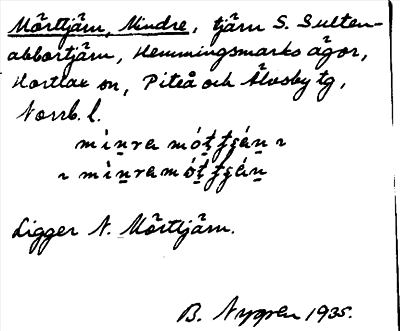 Mörttjärn, Mindre, tjärn S. Sulten-
abborrtjärn, Hemmingsmarks ägor,
Hortlax sn, Piteå och Älvsby tg,
Norrb. l.
Ligger N. Mörttjärn.
B. Nygren 1935.